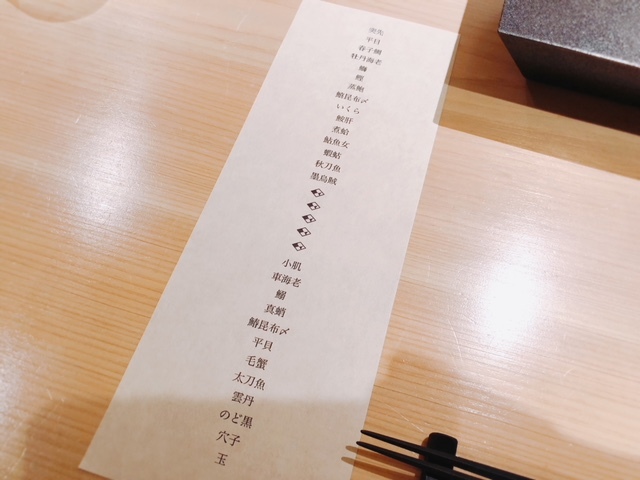 突先
平目
春子鯛
牡丹海老
鰤
鰹
蒸鮑
鰆昆布〆
いくら
鮟肝
煮蛤
鮎魚女
蝦蛄
秋刀魚
墨烏賊
小肌
車海老
鰯
真蛸
鰆昆布〆
平貝
毛蟹
太刀魚
雲丹
のど黒
穴子
玉